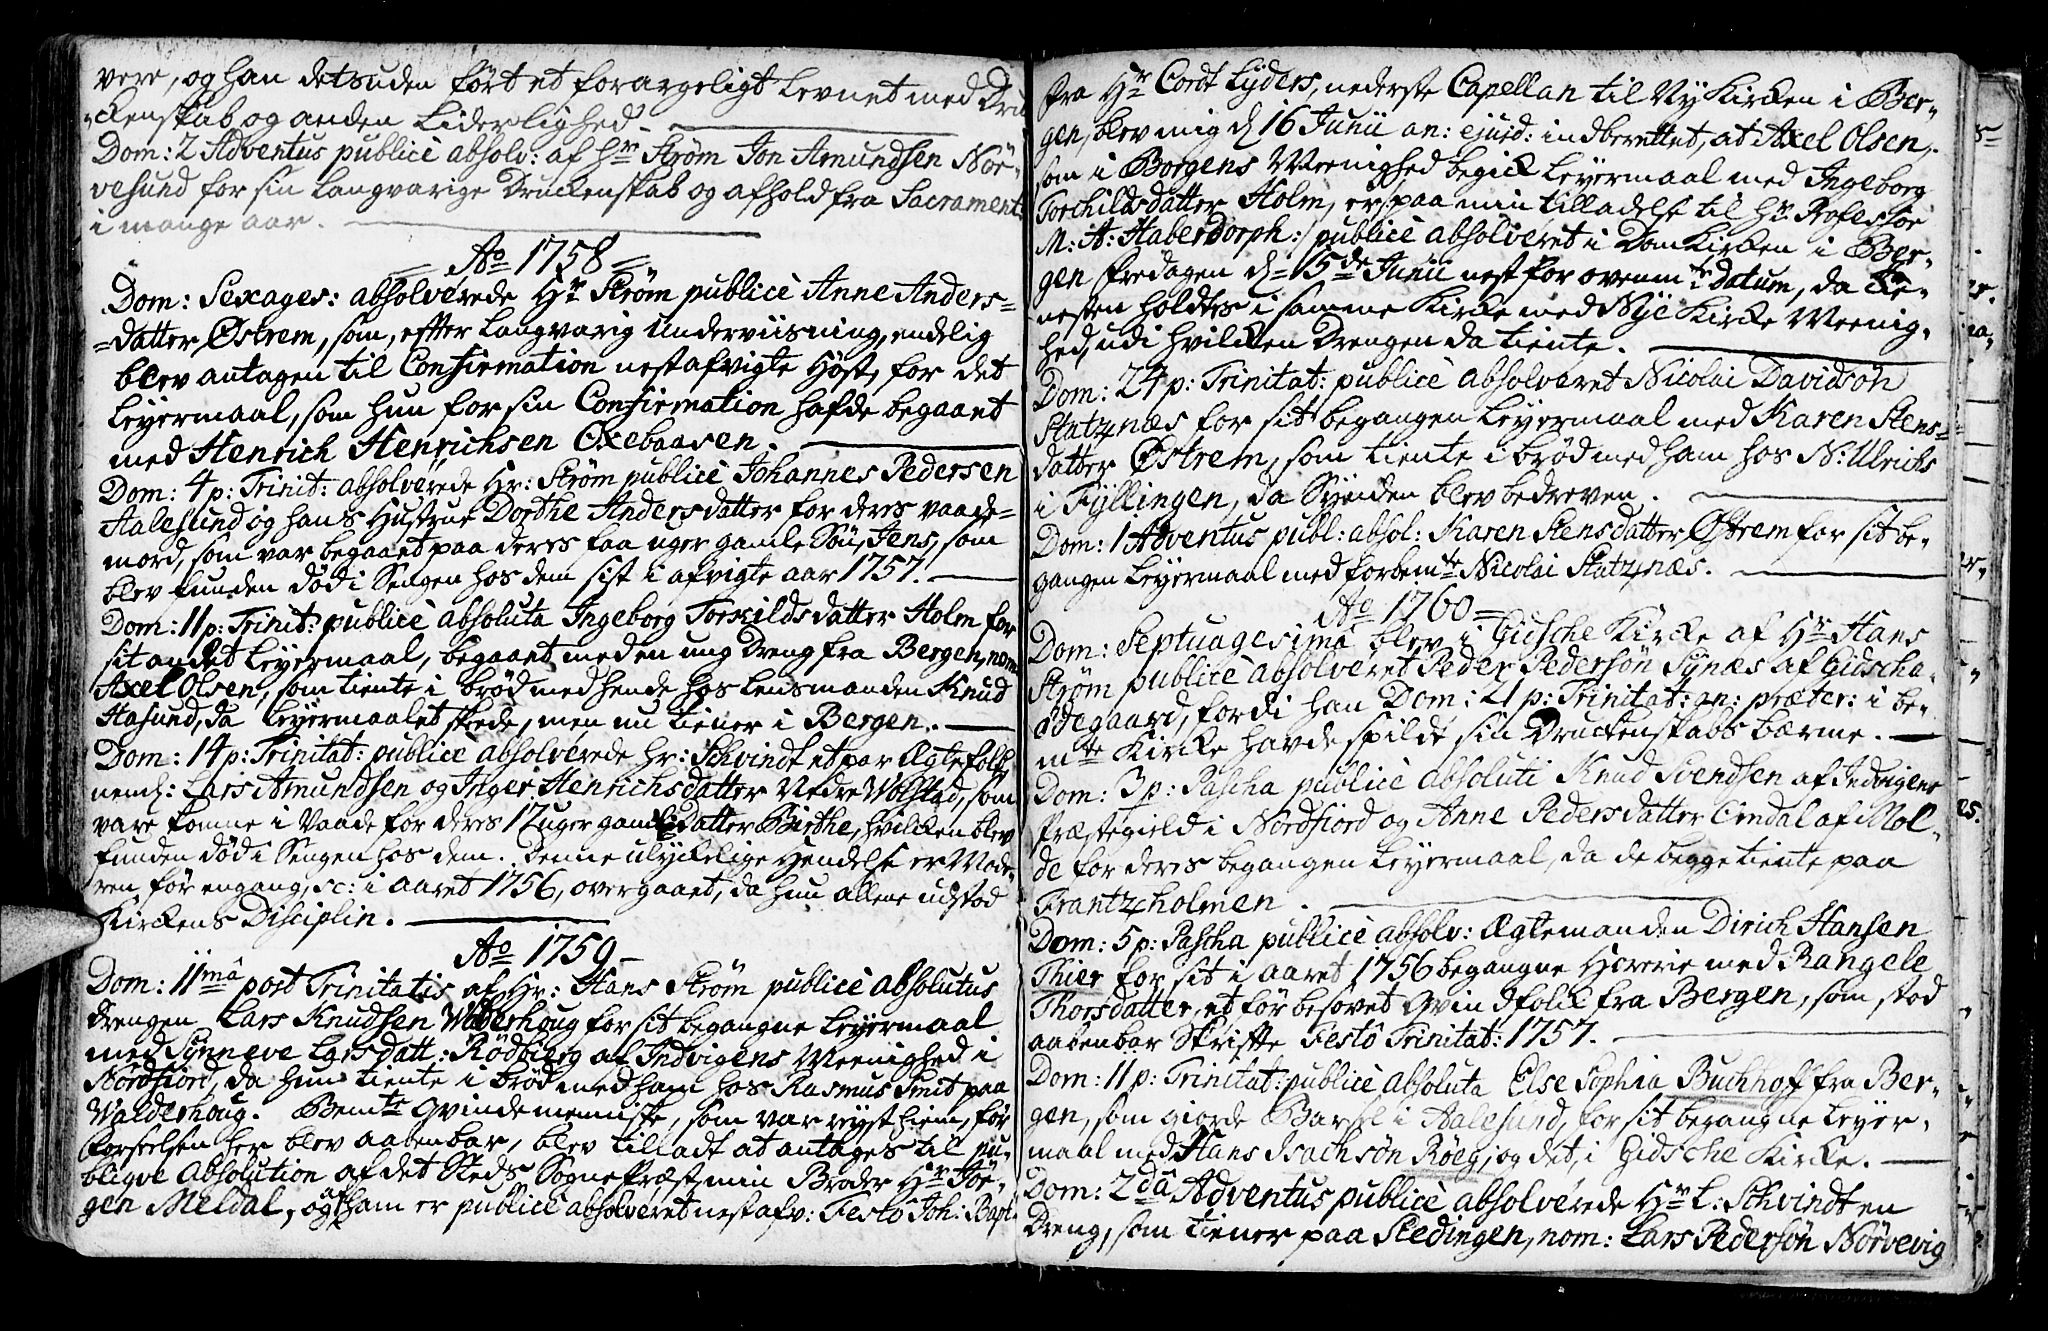 vere, og han detsuden ført et forargeligt Levnet med Dru
-ckenskab og anden Liderlighed. -
Dom: 2 Adventus publicè absolv: af Hr Strøm Jon Amundsen Nör-
vesund for sin Langvarige Druckenskab og afhold fra Sacrament:
i mange aar.
= Ao 1758 =
Dom: Sexages: absolverede Hr Strøm publicè Anne Anders=
=datter Østrem, som, effter Langvarig Underviisning, endelig
blev antagen til Confirmation nestafvigte Høst, for det
Leyermaal, som hun for sin Confirmation hafde begaaet
med Henrich Henrichsen Oxebaasen.
Dom: 4 p: Trinit: absolverede Hr: Strøm publicè Johannes Pedersen
Aalesund og hans Hustrue Dorthe Andersdatter for deres vaade=
mord, som var begaaet paa deres faa uger gamle Søn, Jens, som
blev funden død i Sengen hos dem sist i afvigte aar 1757.
Dom: 11 p: Trinit: publicè absoluta Ingeborg Torkildsdatter Holm for
sit andet Leyermaal, begaaet med en ung Dreng fra Bergen, nom:
Axel Olsen, som tiente i brød med hende hos Lensmanden Knud
Hasund, da Leyermaalet skede, men nu tiener i Bergen.
Dom: 14 p: Trinitat: publicè absolverede hr: Schvindt et par Ægtefolk
neml: Lars Amundsen og Inger Henrichsdatter Nedre Wolstad, som
vare komne i Vaade for deres 17 uger gamle Datter Birthe, hvilcken blev
funden død i Sengen hos dem. Denne ulyckelige Hendelse er Mode-
ren før engang, sc: i aaret 1756, overgaaet, da hun allene udstod
Kirckens Disciplin.
Ao 1759 -
Dom: 11mâ post Trinitatis af Hr: Hans Strøm publicè absolutus
drengen Lars Knudsen Walderhoug for sit begangne Leyermaal
med Synneve Larsdatt: Rødbierg af Indvigens Meenighed i
Nordfiord, da hun tiente i brød med ham hos Rasmus Smit paa
Walderhoug. Bemte Qvindemenniske, som var reyst hiem, før
forseelsen her blev aabenbar, blev tilladt at antages til pu-
bliqve Absolution af det Steds Sognepræst, min Broder Hr Jör-
gen Meldal, og af ham er publicè absolveret nestafv: Festo Joh: Bapt:
fra Hr Cordt Lyders, nederste Capellan til Ny Kircken i Ber-
gen, blev mig d 16 Junii an: ejusd: indberettet, at Axel Olsen,
som i Borgens Meenighed begick Leyermaal med Ingeborg
Torchildsdatter Holm, er, paa min tilladelse til Hr. Professor
M: A: Haberdorph: publicè absolveret i DomKircken i Ber-
gen fredagen d= 15de Junii nest for ovenmte datum, da tie-
nesten holdtes i samme Kircke med Nye Kircke Meenig-
hed, udi hvilcken Drengen da tiente.
Dom: 24 p: Trinitat: publicè absolveret Nicolai Davidsøn
Statznæs for sit begangen Leyermaal med Karen Stens=
datter Østrem, som tiente i brød med ham hos N: Ulrichs
i Fyllingen, da Synden blev bedreven.
Dom: 1 Adventus publ: absol: Karen Stensdatter Østrem for sit be-
gangen Leyermaal med forbemte Nicolai Statznæs.
Ao 1760 =
Dom: Septuagesimâ blev i Giische Kircke af Hr Hans
Strøm publicè absolveret Peder Pedersøn Synæs af Gidscha-
ødegaard, fordi han Dom: 21 p: Trinitat: an: præter: i be-
mte Kircke havde spildt sin Druckenskabs bærme.
Dom: 3 p: Pascha publicè absoluti Knud Svendsen af Indvigens
Præstegield i Nordfiord og Anne Pedersdatter Omdal af Mol-
de for deres begangen Leyermaal, da de begge tiente paa
Frantzholmen.
Dom: 5 p: Pascha publicè absolv: Ægtemanden Dirich Hansen
Thier for sit i aaret 1756 begangne Horerie med Rangele
Thorsdatter, et før besovet Qvindfolk fra Bergen, som stod
aabenbar Skriffte Festô Trinitat: 1757.
Dom: 11 p: Trinitat: publicè absoluta Else Sophia Buchhoff fra Ber-
gen, som giorde Barsel i Aalesund, for sit begangne Leyer-
maal med Hans Isachsøn Røeg, og det, i Gidsche Kircke.
Dom: 2dâ Adventus publicè absolverede Hr L: Schvindt en
Dreng, som tiener paa Stedingen, nom: Lars Pedersøn Nørvevig